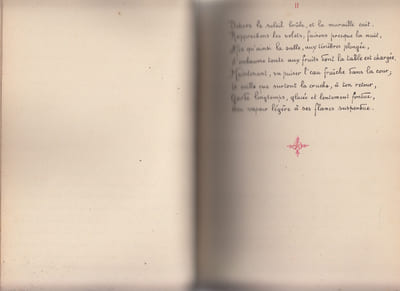 11
Dehors le soleil brûle, et la muraille cuit.
Rapprochons les volets, faisons presque la nuit,
Afin qu'ainsi la salle, aux ténèbres plongée,
S'embaume toute aux fruits dont la table est chargée.
Maintenant, va puiser l'eau fraîche dans la cour;
Et veille que surtout la cruche, à ton retour,
Garde longtemps, glacée et lentement fondue,
Une vapeur légère à ses flancs suspendue.